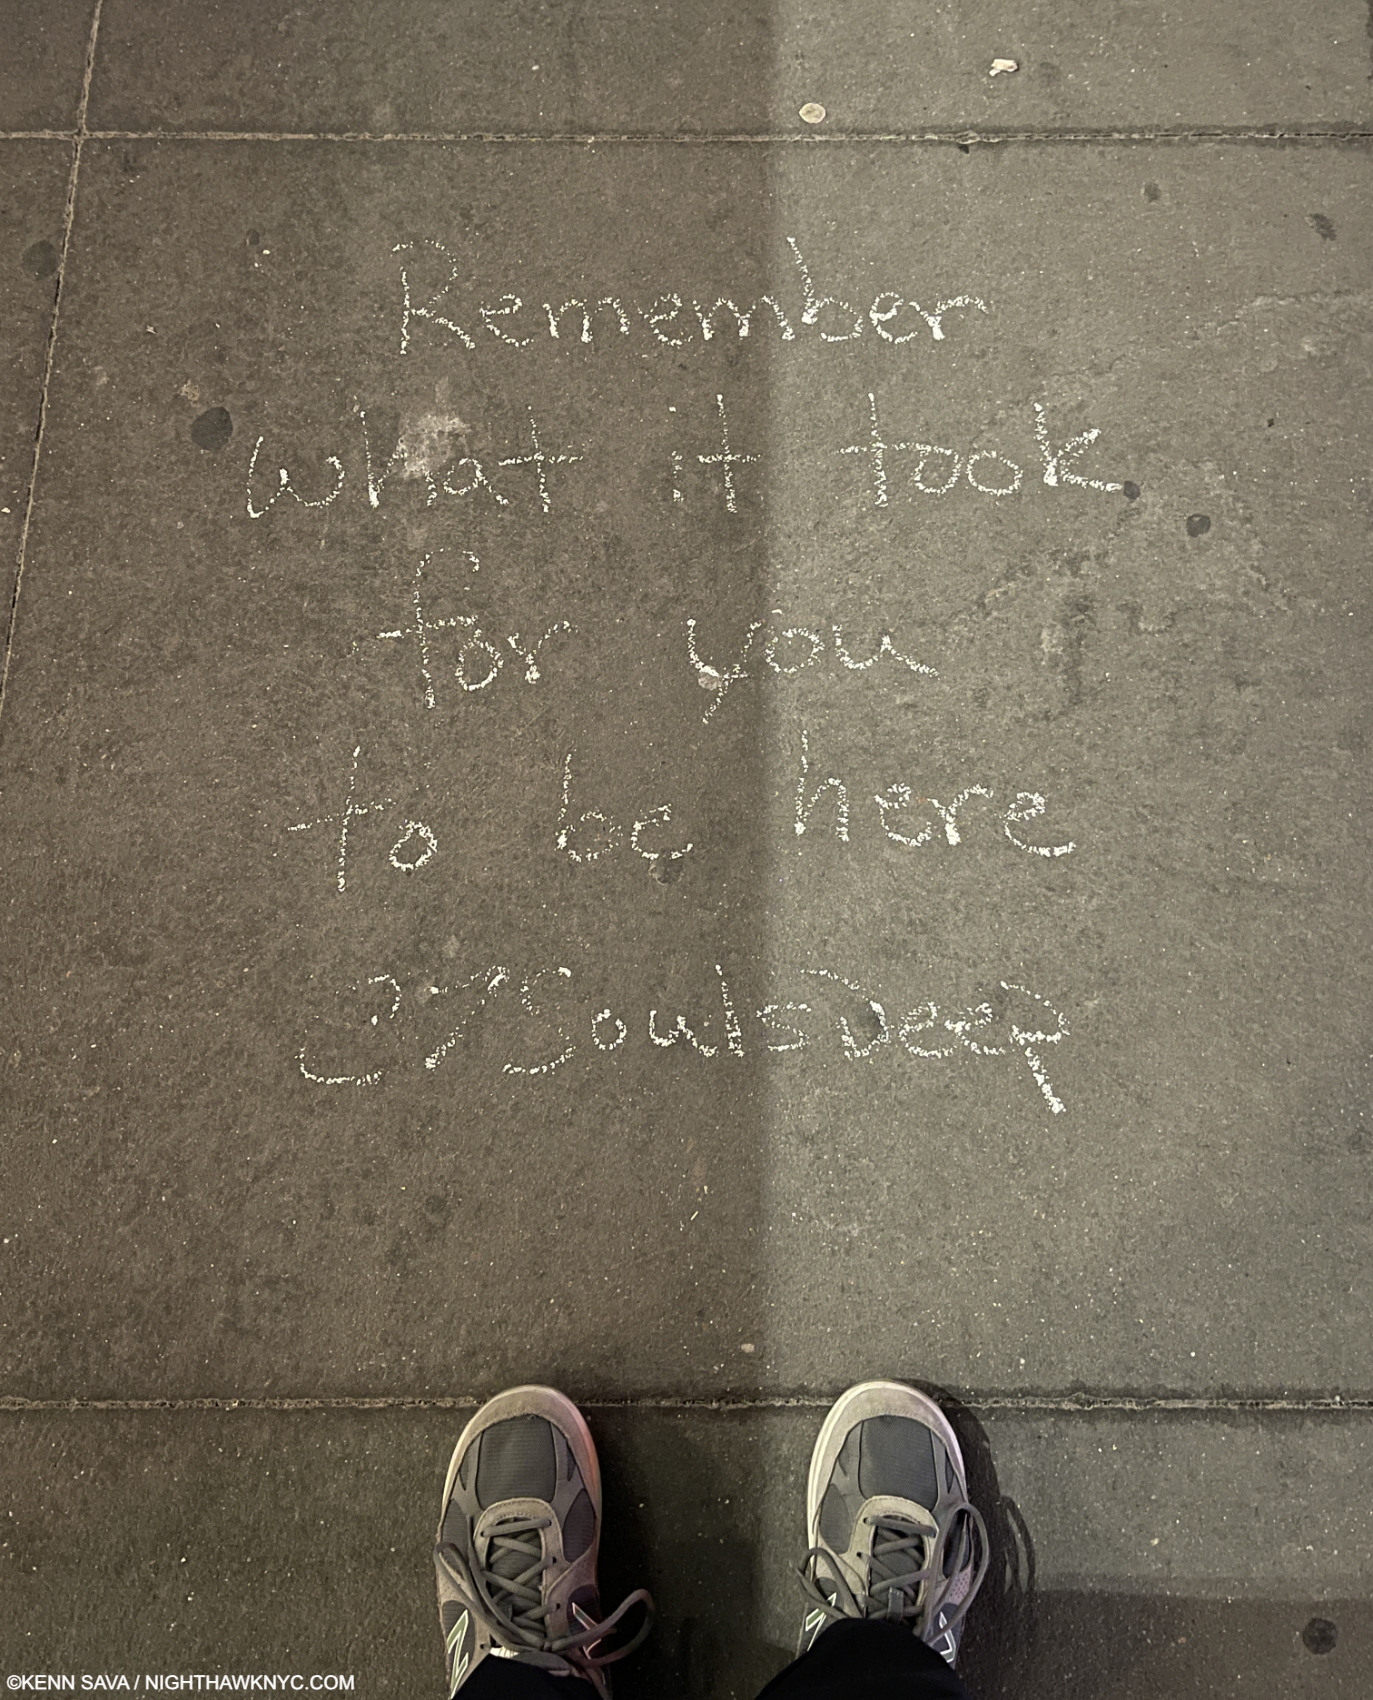 Remember
what it took
for you
to be here
SoulsDeep
©KENN SAVA / NIGHTHAWKNYC.COM